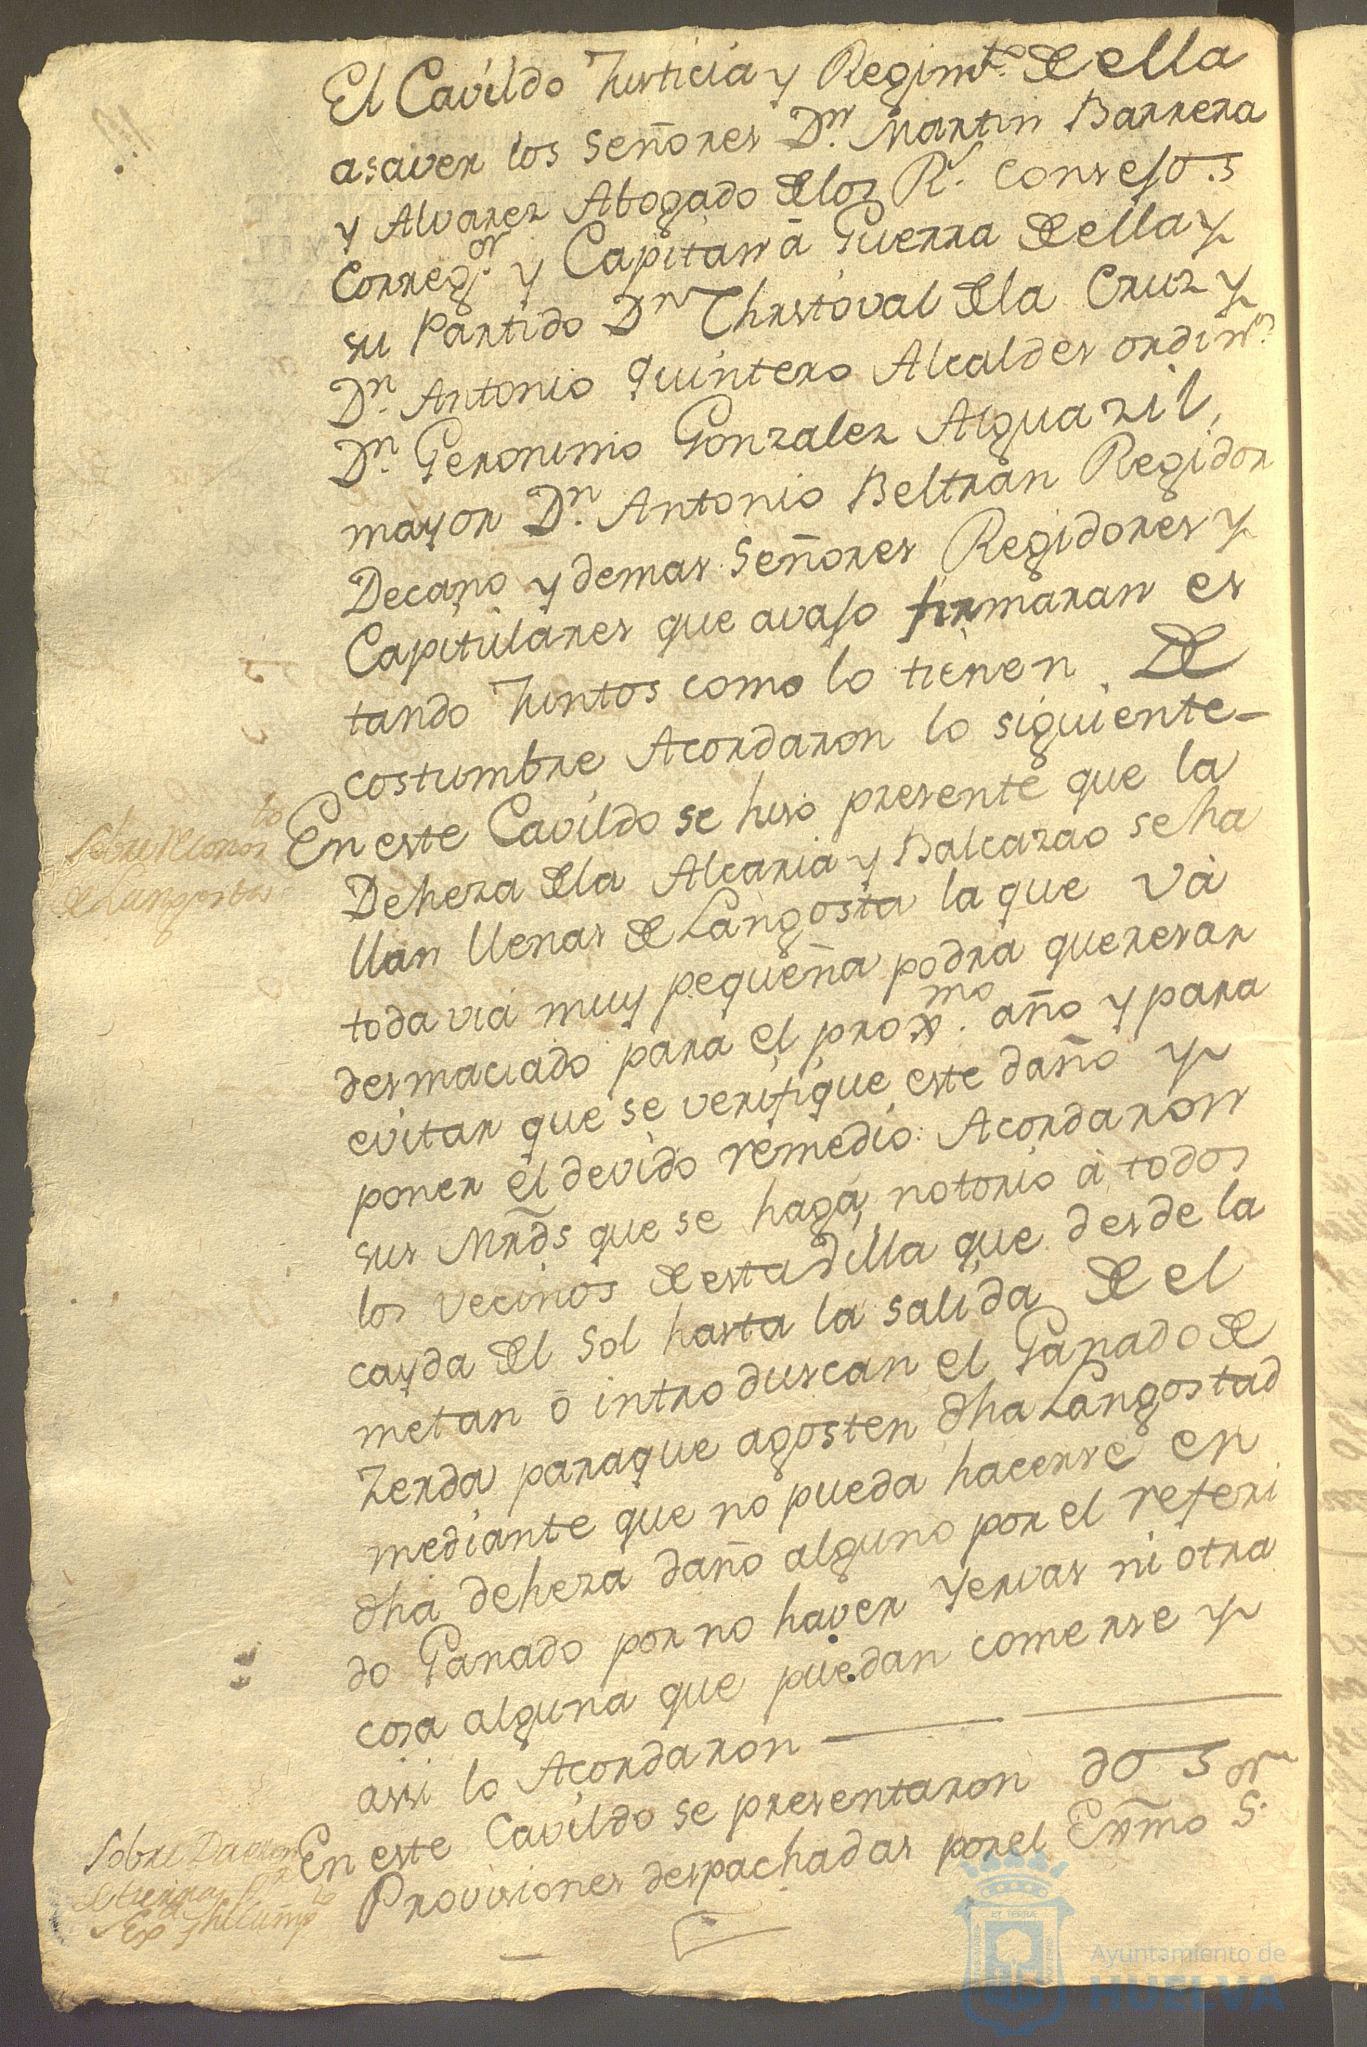 El Cavildo Justicia y Regimto. de ella
asaver los señores Dn. Martin Barrera
y Alvarez Abogado delos Rs. Consejos
Corregor. y Capitan â Guerra de ella y
su Partido Dn Christoval dela Cruz y
Dn. Antonio Quintero Alcaldes ordins.
Dn. Geronimo Gonzalez Alguazil
mayor Dn. Antonio Beltran Regidor
Decano y demas señores Regidores y
Capitulares que avajo firmaran es
tando Juntos como lo tienen de
costumbre Acordaron lo siguiente
Sobre
de Langostas
En este Cavildo se hiso presente que la
Deheza dela Alcaria y Balcazao seha
llan llenas de Langosta la que và
todavia muy pequeña podra queresar
desmaciado para el proxmo. año y para
evitar que se verifique este daño y
poner el devido remedio: Acordaron
sus Mrds que se haga notorio à todos
los vecinos de esta Villa que desde la
cayda del Sol hasta la salida de el
metan ô introduscan el Ganado de
Zerda paraque agosten dha Langosta
mediante que no pueda hacerse en
dha deheza daño alguno por el referi
do Ganado por no haver Yervas ni otra
cosa alguna que puedan comerse y
assi lo Acordaron
Sobre
En este Cavildo se presentaron dos
Provisiones despachadas porel Exmo Sor.
Ayuntamiento de
HUELVA